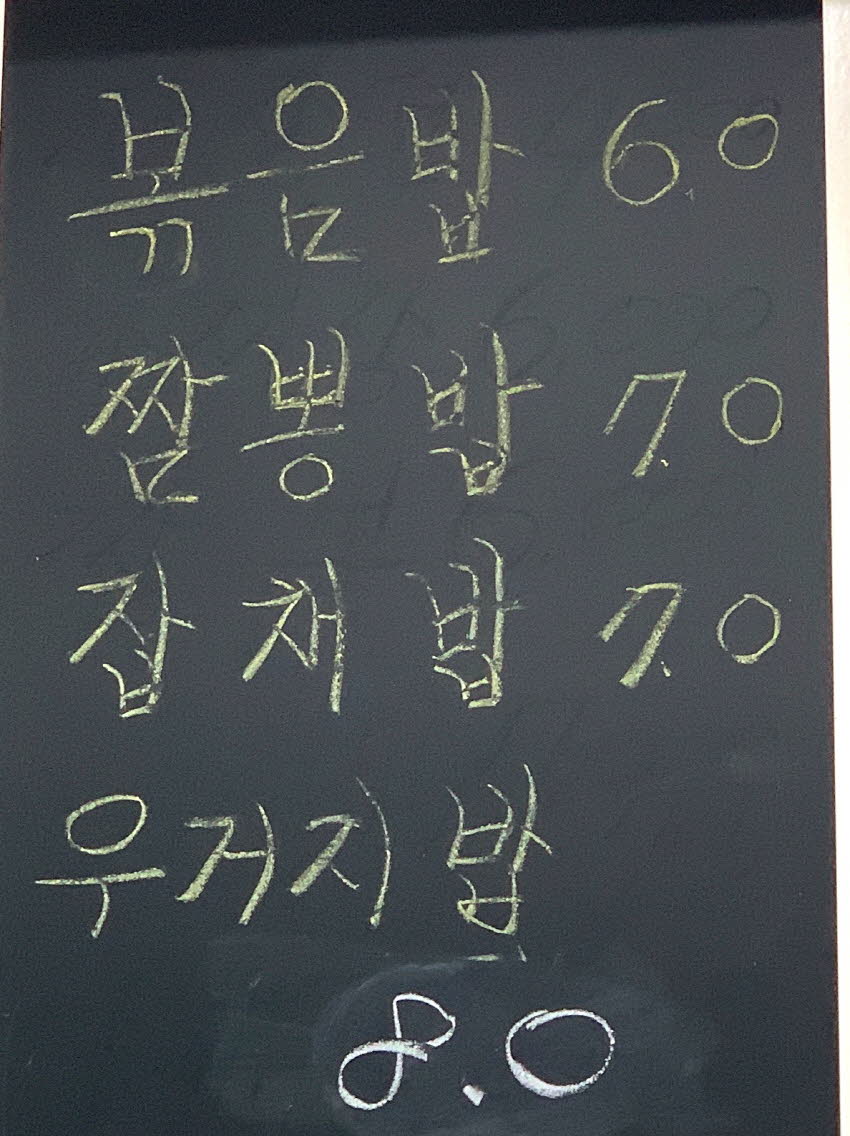 볶음밥 6.0
짬뽕밥 7.0
잡채밥 7.0
우거지밥
8.0